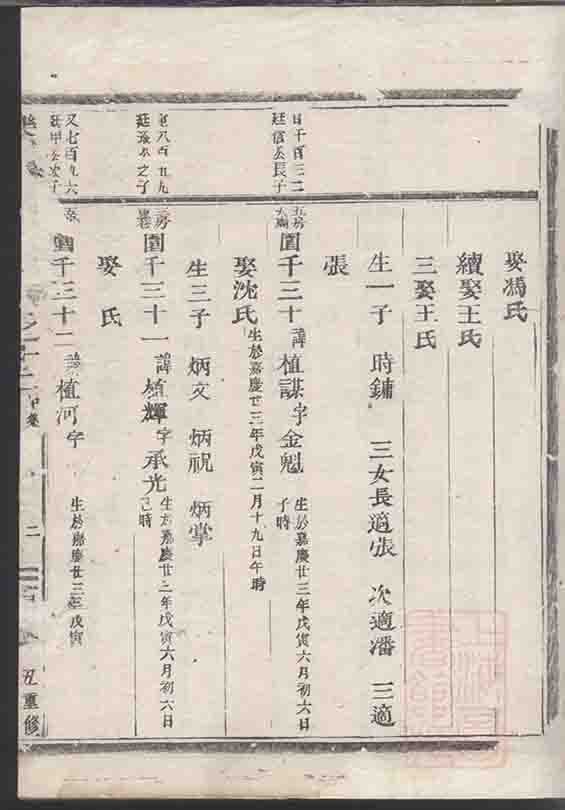 娶馮氏
續娶王氏
三娶王氏
生一子 時鏞 三女長適張 次適潘 三適
張
千百三二
廷信公長子
五房
圓千三十 諱植謀字金魁 生於嘉慶廿三年戊寅六月初六日
子時
娶沈氏 生於嘉慶廿三年戊寅二月十九日午時
生三子 炳文 炳祝 炳掌
八百五九
廷 公之子
房
圓千三十一 諱植輝字承光 生於嘉慶廿三年戊寅六月初六日
己時
娶 氏
又七百九六
廷甲公次子
圓千三十二 諱植河字 生於嘉慶廿三年戊寅
二
丑重修